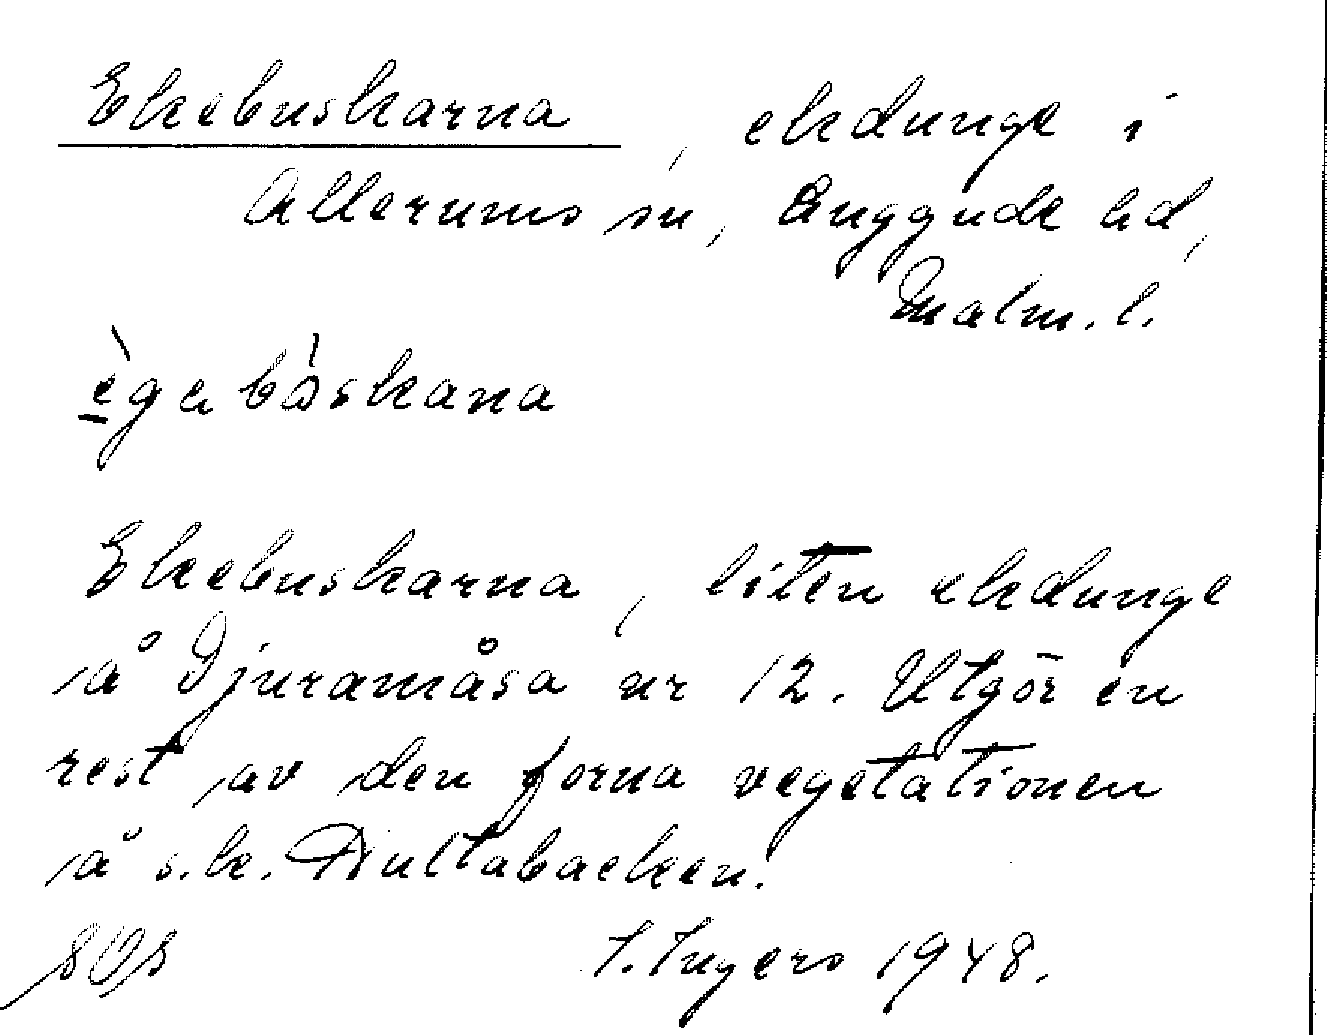 Ekebuskarna, ekdunge i
Allerums sn, Luggude hd,
Malm. l.
ègabòskana
Ekebuskarna, liten ekdunge
å Djuramåsa nr 12. Utgör en
rest av den forna vegetationen
å s.k. Dultabacken.
I. Ingers 1948.